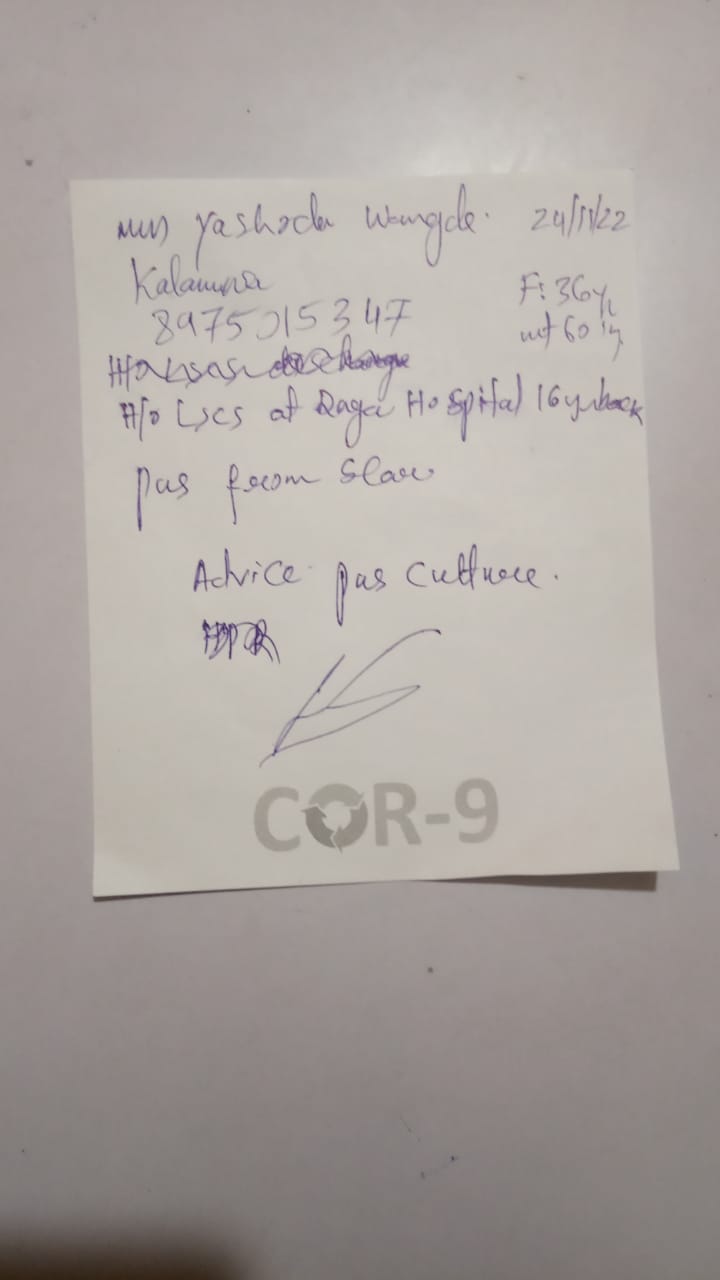 Mrs Yashoda Wangde. 24/11/22
Kalamna F: 36y
8975015347 wt 60 kg
H/o LSCS at Daga Hospital 16 yr back
pus from Scar
Advice pus culture.
COR-9